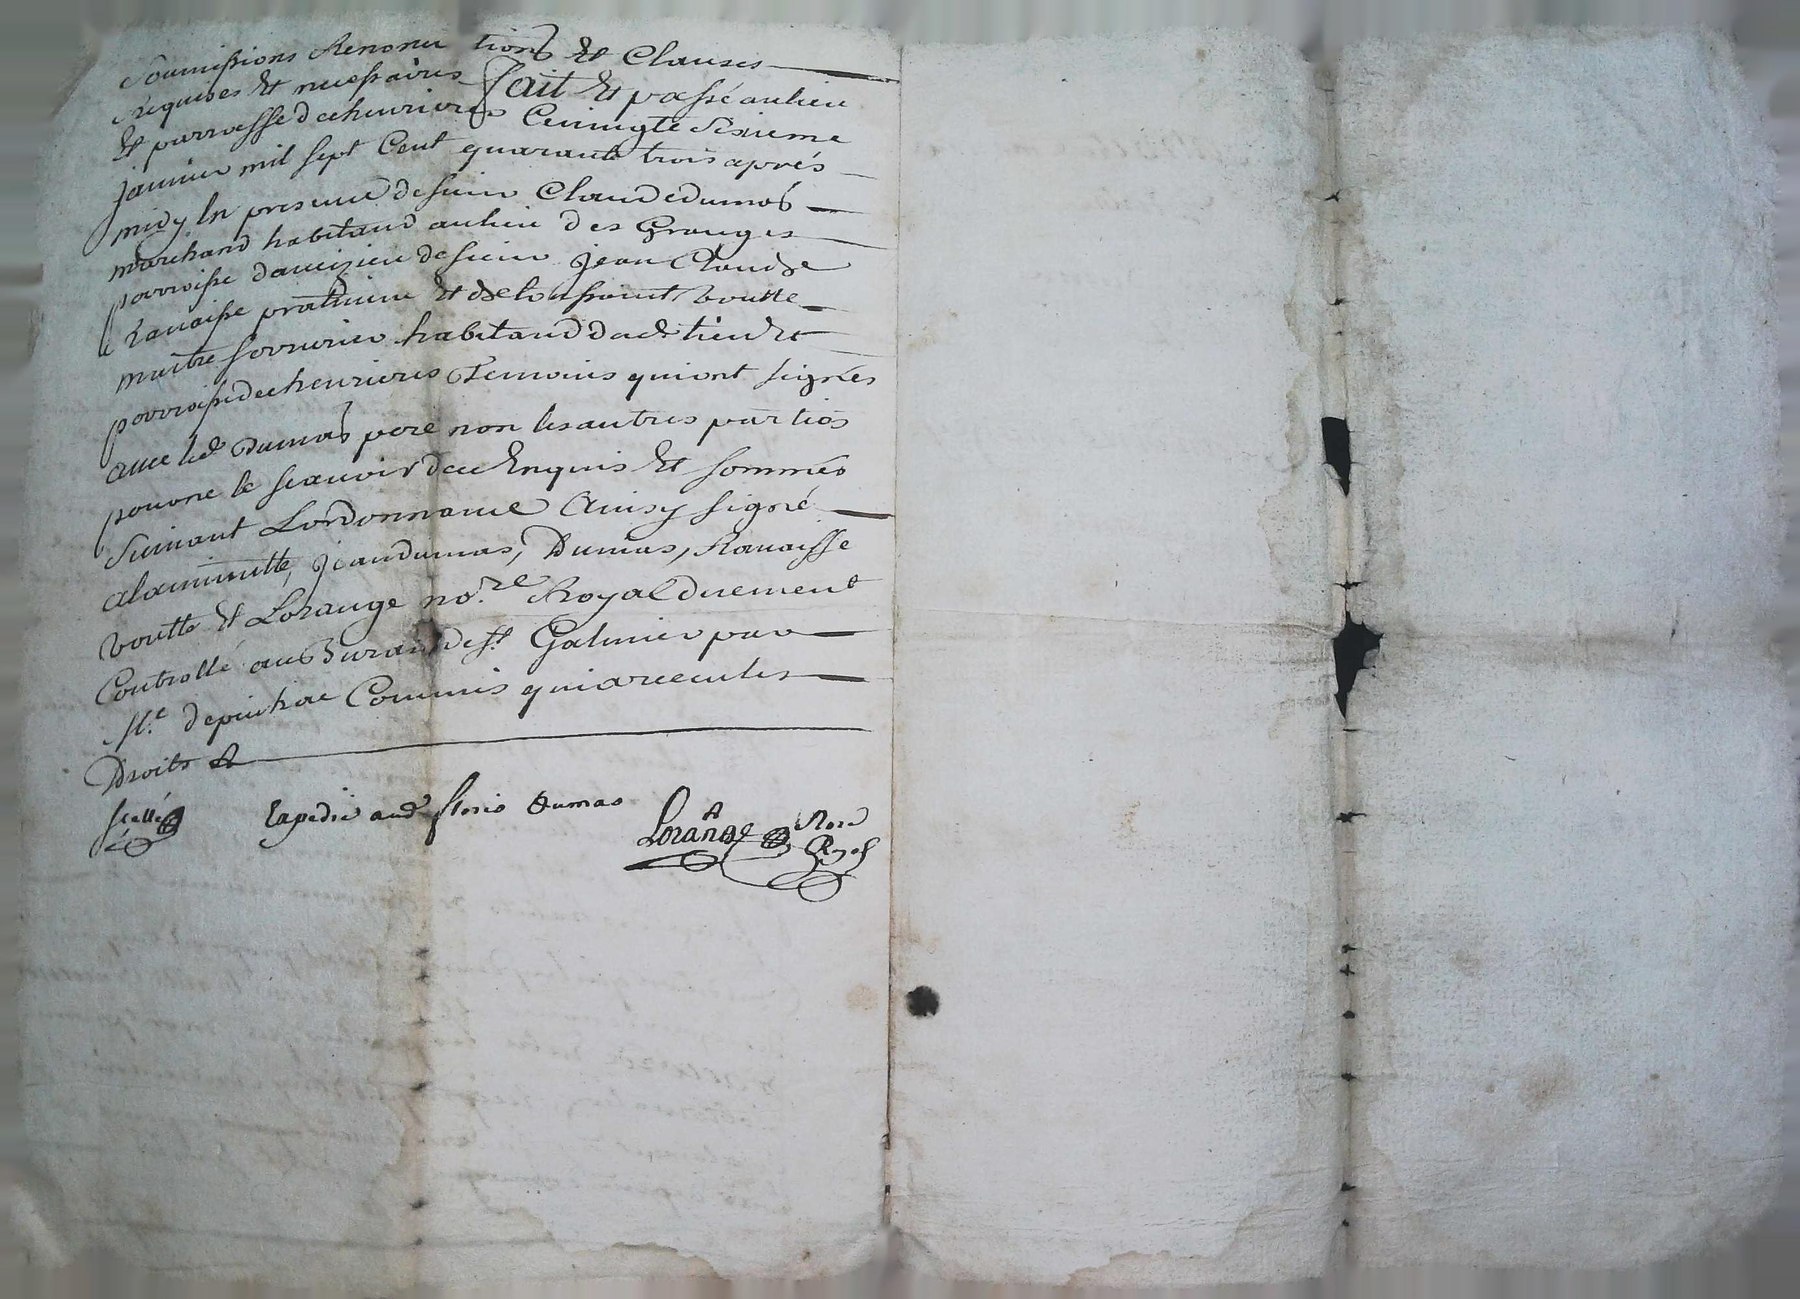 Soumissions Renonciations Et Clauses
Requises Et necessaires fait Et passé au lieu
Et parroesse de chevrieres Ce vingte sixieme
janvier mil sept Cent quarante trois après
midy En presence de sieur Claude dumas
marchand habitand au lieu des Granges
parroisse d'aveizieu de sieur jean Claude
Ravaisse praticien Et de toussaint voutte
maitre serrurier habitand dud. lieu Et
parroisse de chevrieres Temoins qui ont signés
avec led. Dumas pere non les autres parties
pour ne le sçavoir de ce Enquis Et sommés
suivant Lordonnance Ainsy signé
a la minutte, jean dumas, Dumas, Ravaisse
voutte Et Lorange no.re Royal duement
Controllé au Bureau de st. Galmier par
Mr. depeuhac Commis qui a receu les
Droits
scellé Expedié aud. floris Dumas
Lorange Nore
Royal